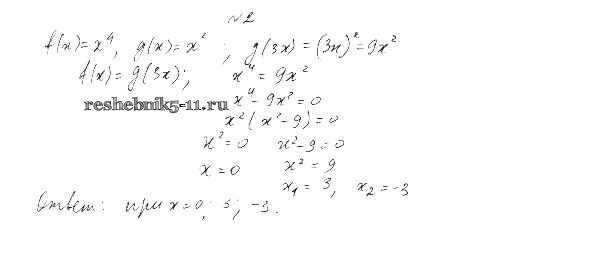 №2
f(x)=x⁴, g(x)=x² ; g(3x)=(3x)²=9x²
f(x)=g(3x); x⁴=9x²
reshebnik5-11.ru x⁴-9x²=0
x²(x²-9)=0
x²=0 x²-9=0
x=0 x²=9
x₁=3; x₂=-3
Ответ: при x=0; 3; -3.